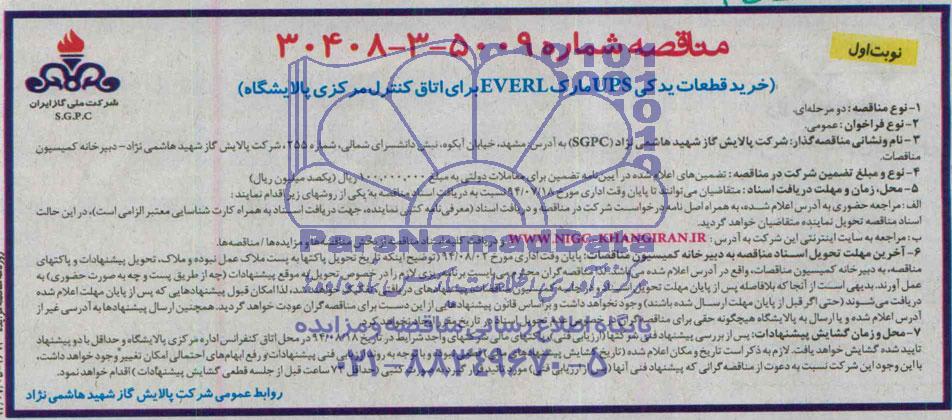 نوبت اول
مناقصه شماره ۵۰۰۹-۳-۳۰۴۰۸
(خرید قطعات یدکی UPS مارک EVERL برای اتاق کنترل مرکزی پالایشگاه)
شرکت ملی گاز ایران
S.G.P.C
۱- نوع مناقصه: دو مرحله‌ای.
۲- نوع فراخوان: عمومی.
۳- نام و نشانی مناقصه گذار: شرکت پالایش گاز شهید هاشمی نژاد (SGPC) به آدرس: مشهد، خیابان آبکوه، نبش دانشسرای شمالی، شماره ۲۵۵، شرکت پالایش گاز شهید هاشمی نژاد- دبیرخانه کمیسیون
مناقصات.
۴- نوع و مبلغ تضمین شرکت در مناقصه: تضمین‌های اعلام شده در آیین نامه تضمین برای معاملات دولتی به مبلغ ۱۰۰,۰۰۰,۰۰۰ ریال (یکصد میلیون ریال)
۵- محل، زمان و مهلت دریافت اسناد: متقاضیان می‌توانند تا پایان وقت اداری مورخ ۹۴/۰۷/۱۸ نسبت به دریافت اسناد مناقصه به یکی از روشهای زیر اقدام نمایند:
الف: مراجعه حضوری به آدرس اعلام شده، به همراه اصل نامه درخواست شرکت در مناقصه و دریافت اسناد (معرفی‌نامه کتبی نماینده، جهت دریافت اسناد به همراه کارت شناسایی معتبر الزامی است)، در این حالت
اسناد مناقصه تحویل نماینده متقاضیان خواهد گردید.
ب: مراجعه به سایت اینترنتی این شرکت به آدرس: WWW.NIGC-KHANGIRAN.IR و دریافت کلیه اسناد مناقصه از بخش مناقصه‌ها و مزایده‌ها / مناقصه‌ها.
۶- آخرین مهلت تحویل اسناد مناقصه به دبیرخانه کمیسیون مناقصات: پایان وقت اداری مورخ ۹۴/۰۸/۰۲ (توضیح اینکه تاریخ تحویل پاکتها به پست ملاک عمل نبوده و ملاک، تحویل پیشنهادات و پاکتهای
مناقصه، به دبیرخانه کمیسیون مناقصات، واقع در آدرس اعلام شده می‌باشد) مناقصه گران محترم می‌بایست برنامه‌ریزی لازم را در خصوص تحویل به موقع پیشنهادات (چه از طریق پست و چه به صورت حضوری) به
عمل آورند. بدیهی است از آنجا که بلافاصله پس از پایان مهلت تحویل لذا امکان قبول پیشنهادهایی که پس از پایان مهلت اعلام شده
دریافت می‌شوند (حتی اگر قبل از پایان مهلت ارسال شده باشند) وجود نخواهد داشت و بر اساس قانون پیشنهادهایی از این دست برای مناقصه گران عودت خواهد گردید. همچنین ارسال پیشنهادها به آدرسی غیر از
آدرس اعلام شده و یا ارسال به پالایشگاه هیچگونه حقی برای مناقصه گران در خصوص
۷- محل و زمان گشایش پیشنهادات: پس از بررسی پیشنهاد فنی شرکتها (ارزیابی فنی) پاکتهای مالی شرکتهای واجد شرایط در تاریخ ۹۴/۰۸/۱۸ در محل اتاق کنفرانس اداره مرکزی پالایشگاه و حداقل با دو پیشنهاد
تایید شده گشایش خواهد یافت. لازم به ذکر است تاریخ و مکان اعلام شده (تاریخ گشایش پیشنهادات و با توجه به روند ارزیابی فنی پیشنهادات و رفع ابهام‌های احتمالی امکان تغییر وجود خواهد داشت،
با این وجود این شرکت نسبت به دعوت از مناقصه گرانی که پیشنهاد فنی آنها (پس از ارزیابی فنی) مورد تائید قرار گیرد به صورت کتبی حداقل ۷۲ ساعت قبل از جلسه قطعی گشایش پیشنهادات) اقدام خواهد نمود.
روابط عمومی شرکت پالایش گاز شهید هاشمی نژاد
ParsNamadData
پایگاه اطلاع رسانی مناقصه و مزایده
۰۲۱-۸۸۳۴۹۶۷۰-۵